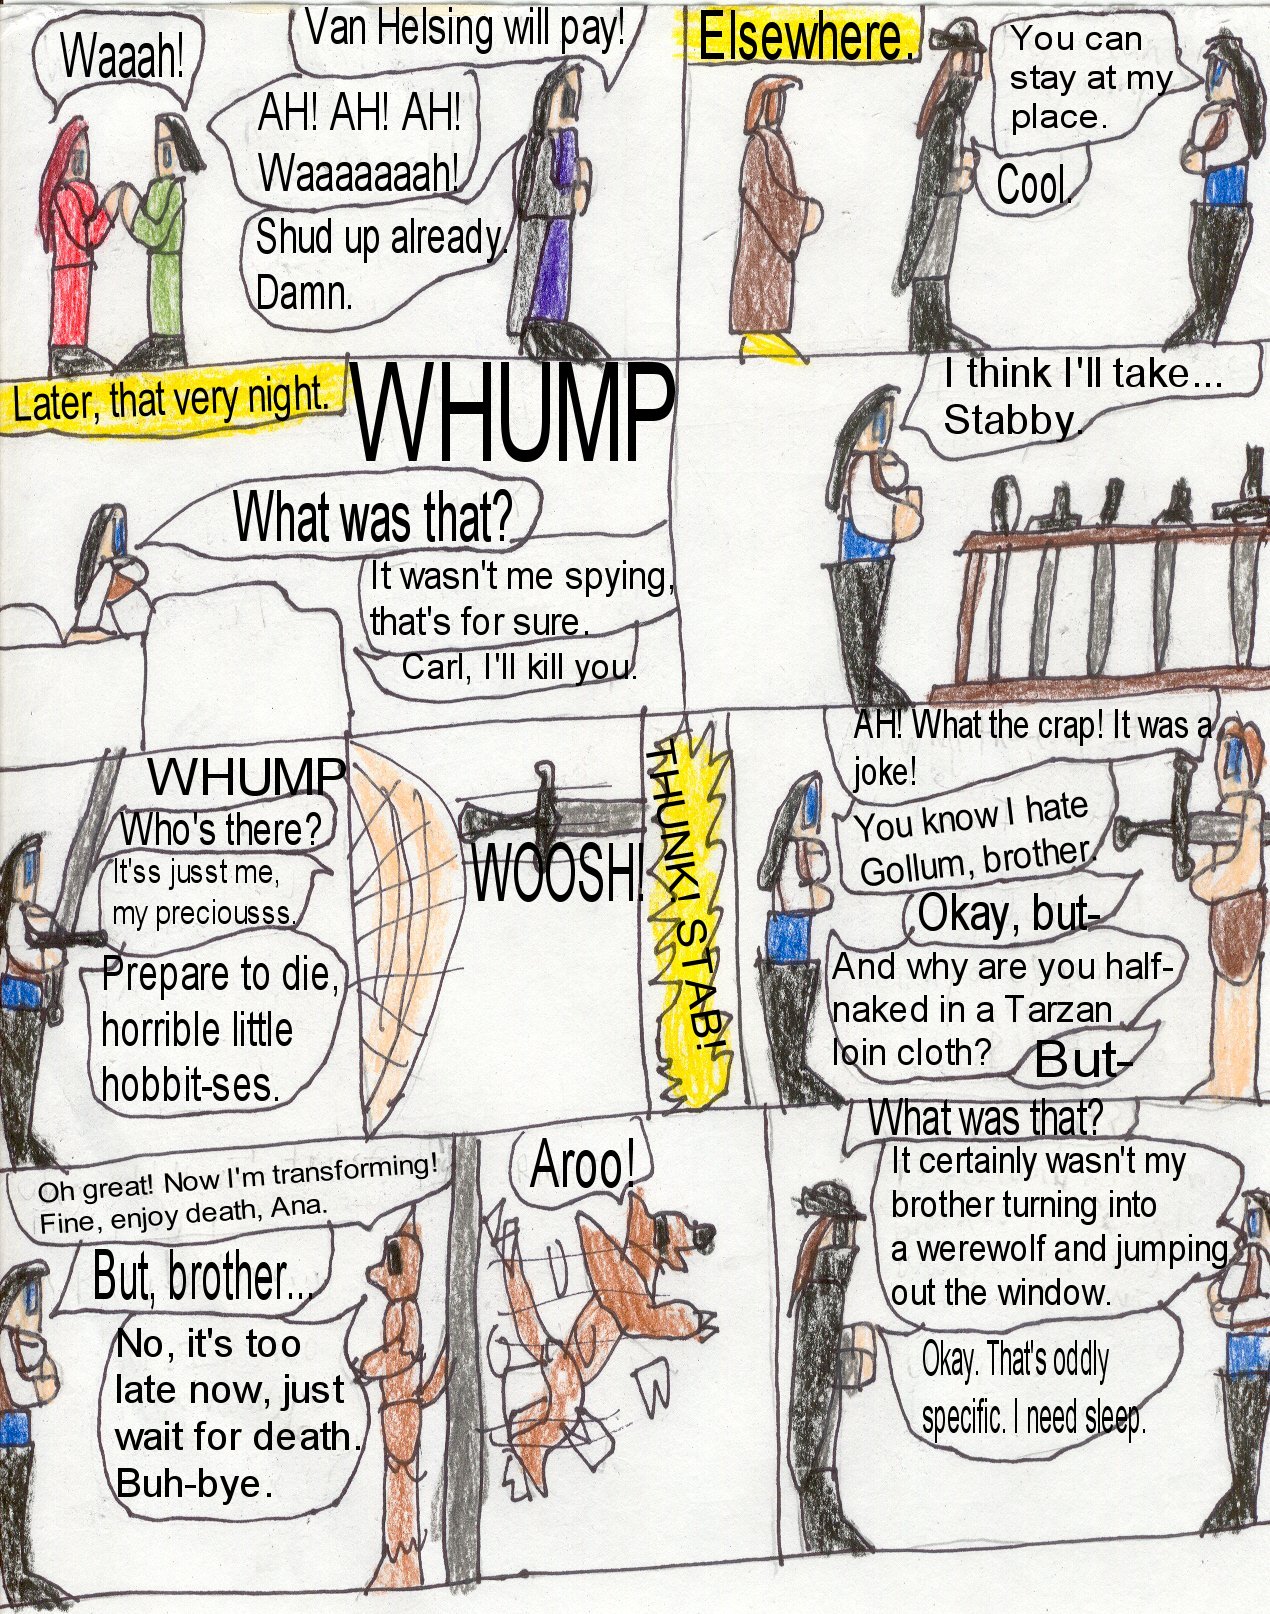 Waaah!
Van Helsing will pay!
AH! AH! AH!
Waaaaaaah!
Shud up already.
Damn.
Elsewhere.
You can
stay at my
place.
Cool.
Later, that very night.
WHUMP
What was that?
It wasn't me spying,
that's for sure.
Carl, I'll kill you.
I think I'll take...
Stabby.
WHUMP
Who's there?
It'ss jusst me,
my preciousss.
Prepare to die,
horrible little
hobbit-ses.
WOOSH!
THUNK! STAB!
AH! What the crap! It was a
joke!
You know I hate
Gollum, brother.
Okay, but-
And why are you half-
naked in a Tarzan
loin cloth?
But-
Oh great! Now I'm transforming!
Fine, enjoy death, Ana.
But, brother...
No, it's too
late now, just
wait for death.
Buh-bye.
Aroo!
What was that?
It certainly wasn't my
brother turning into
a werewolf and jumping
out the window.
Okay. That's oddly
specific. I need sleep.